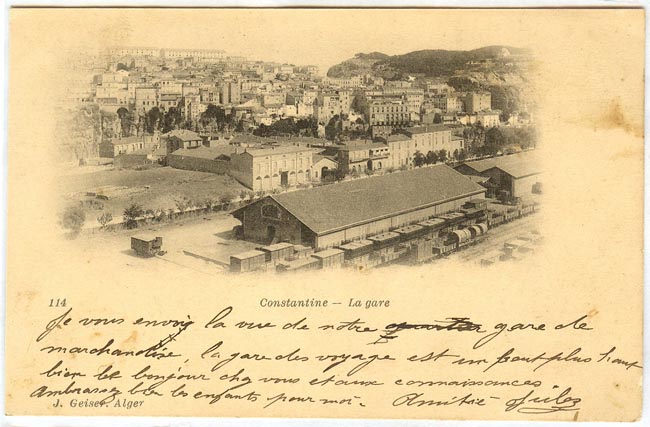 114 Constantine — La gare
Je vous envoi la vue de notre gare de
marchandise, la gare des voyage est un peut plus haut
bien le bonjour chez vous et aux connaissances
Ambrassez bien les enfants pour moi. Amitié Jules
J. Geiser. Alger